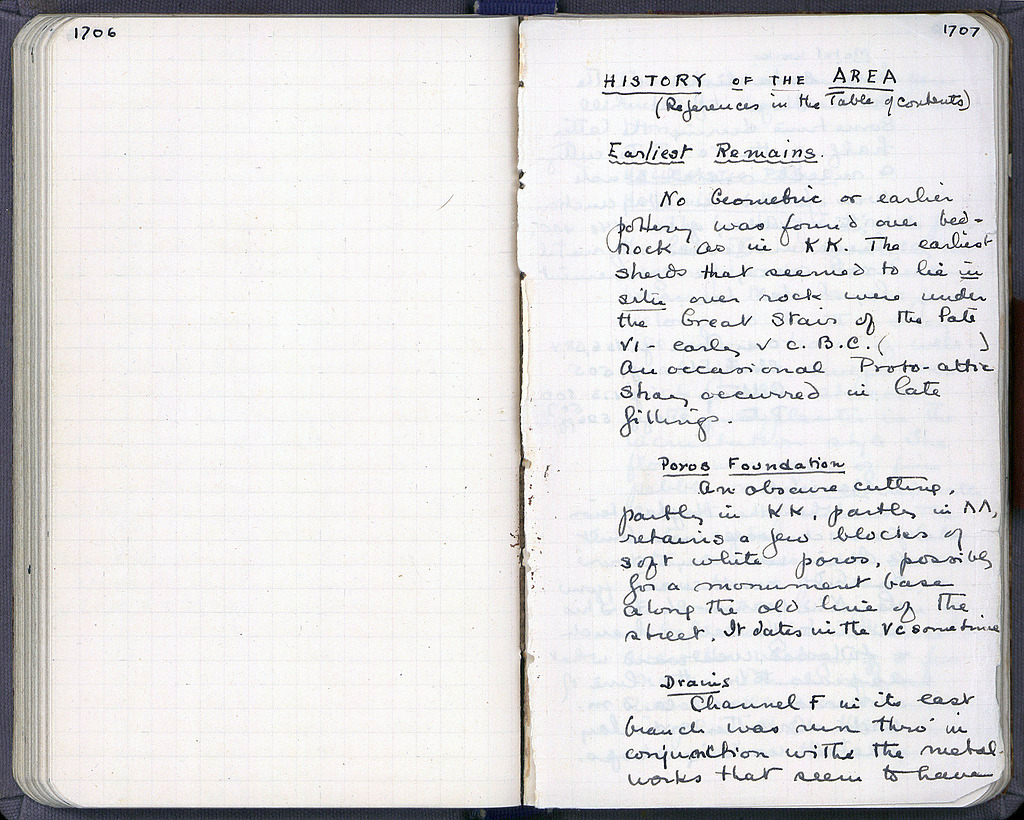 1706
1707
HISTORY OF THE AREA
(References in the Table of contents)
Earliest Remains.
No Geometric or earlier
pottery was found over bed-
rock as in KK. The earliest
sherds that seemed to lie in
situ over rock were under
the Great Stair of the late
VI - early V c. B.C. ( )
An occasional Proto-attic
stray occurred in late
fillings.
Poros Foundation
An obscure cutting,
partly in KK, partly in ΛΛ,
retains a few blocks of
soft white poros, possibly
for a monument base
along the old line of the
street. It dates in the V c sometime
Drains
Channel F in its east
branch was run thro' in
conjunction withe the metal-
works that seem to have